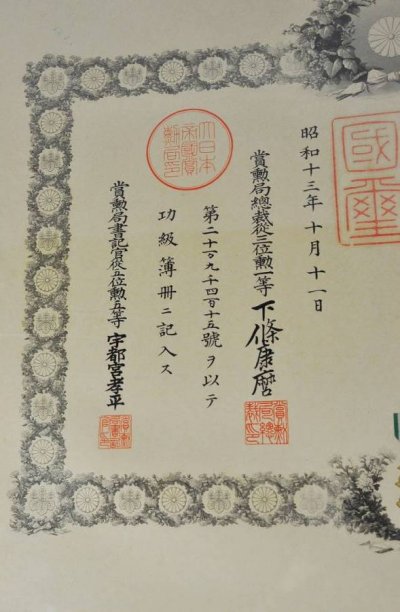 昭和十三年十月十一日
國璽
賞勲局總裁從三位勲一等下條康麿
第二十六万九千四百十五號ヲ以テ
功級簿册ニ記入ス
大日本帝國賞勲局印
賞勲局書記官從五位勲五等宇都宮孝平